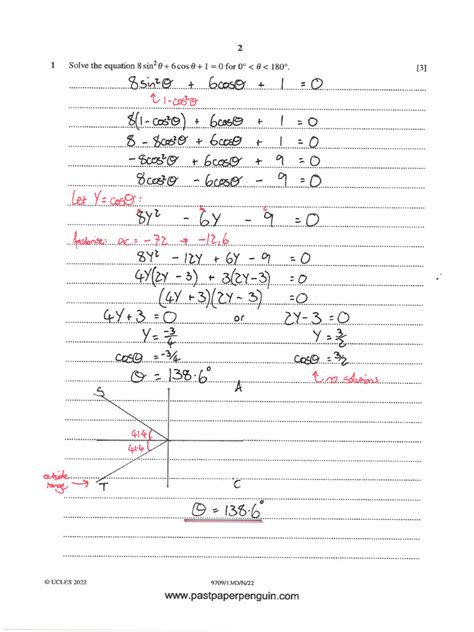 2
1 Solve the equation 8 sin² θ + 6 cos θ + 1 = 0 for 0° < θ < 180°. [3]
8sin²θ + 6cosθ + 1 = 0
↑ 1-cos²θ
8(1-cos²θ) + 6cosθ + 1 = 0
8 - 8cos²θ + 6cosθ + 1 = 0
-8cos²θ + 6cosθ + 9 = 0
8cos²θ - 6cosθ - 9 = 0
Let Y = cosθ:
8Y² - 6Y - 9 = 0
factorise: ac = -72 → -12,6
8Y² - 12Y + 6Y - 9 = 0
4Y(2Y-3) + 3(2Y-3) = 0
(4Y+3)(2Y-3) = 0
4Y+3 = 0 or 2Y-3 = 0
Y = -3/4 Y = 3/2
cosθ = -3/4 cosθ = 3/2
θ = 138.6° ↑ no solutions
S A
41.4
41.4
outside range → T C
θ = 138.6°
© UCLES 2022 9709/13/O/N/22
www.pastpaperpenguin.com